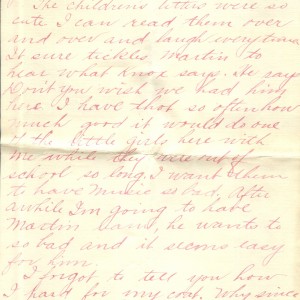 The childrens letters were so
cute I can read them over
and over and laugh everytime
It sure tickles Martin to
hear what Knox says. He says
Don't you wish we had him
here. I have thot so often how
much good it would do one
of the little girls here with
me while they were out of
school so long. I want them
to have music so bad. After
awhile I'm going to have
Martin learn, he wants to
so bad and it seems easy
for him.
I forgot to tell you how
I paid for my coat. Why since